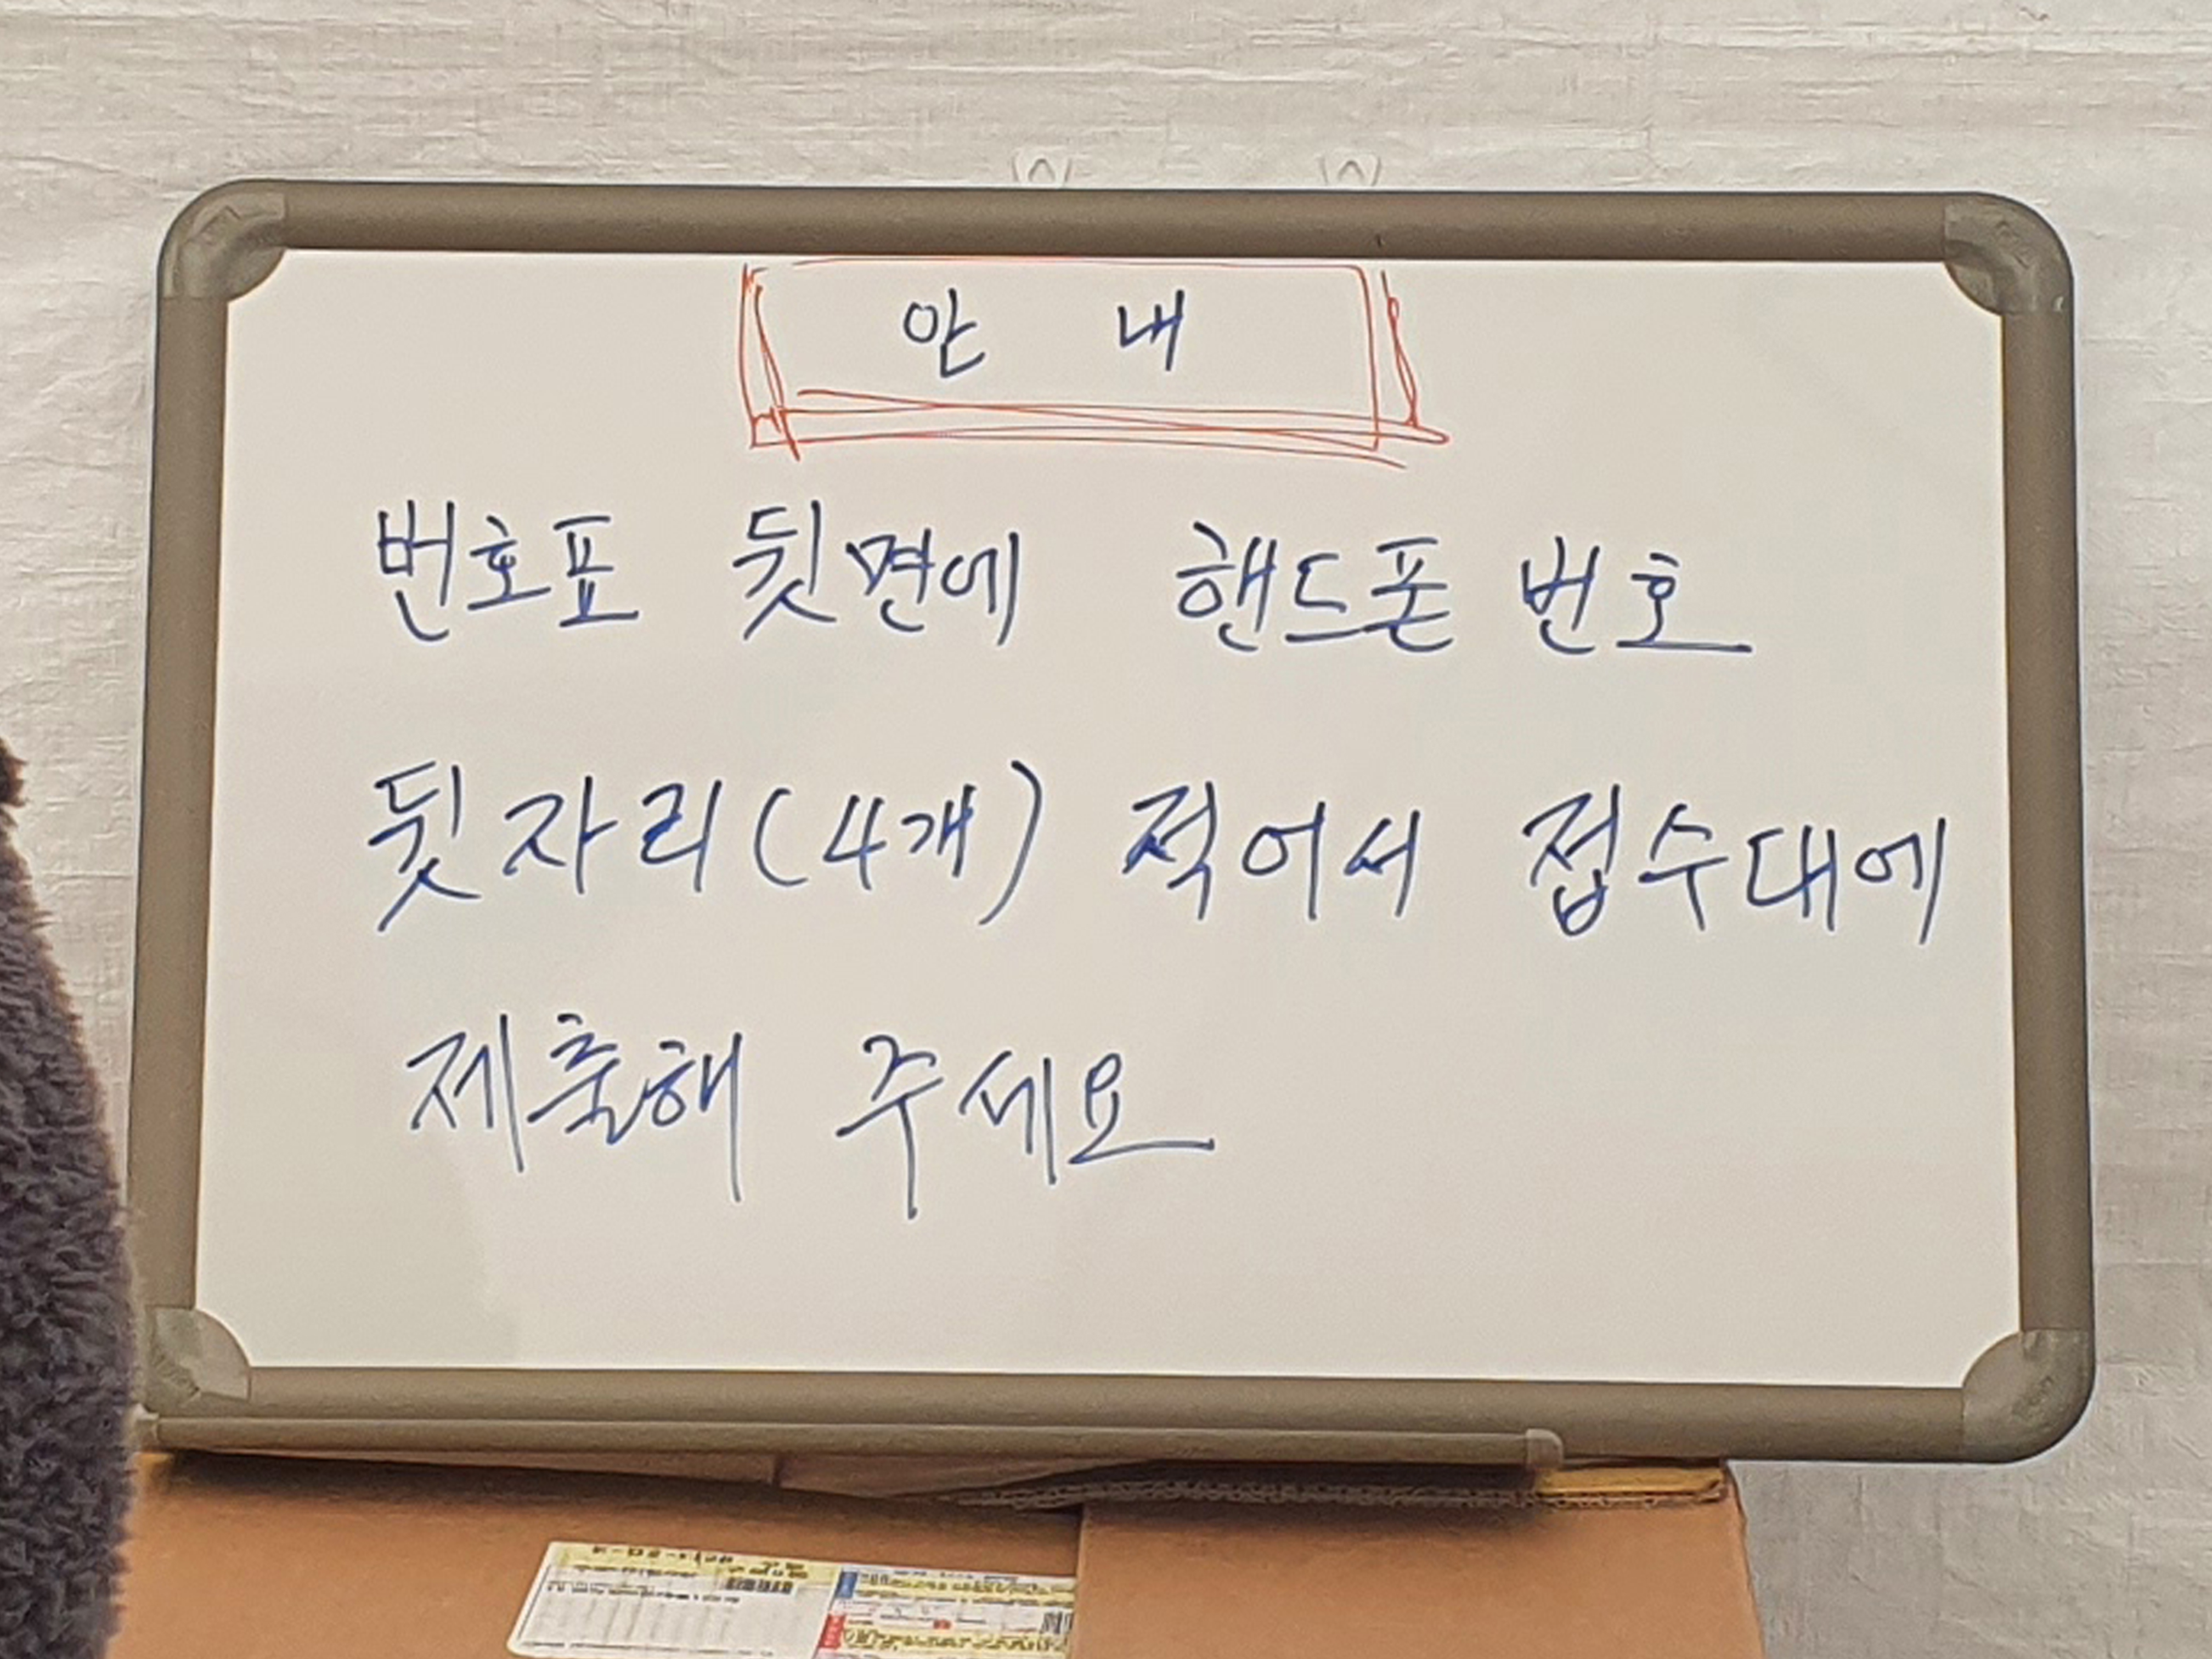 안 내
번호표 뒷면에 핸드폰 번호
뒷자리(4개) 적어서 접수대에
제출해 주세요